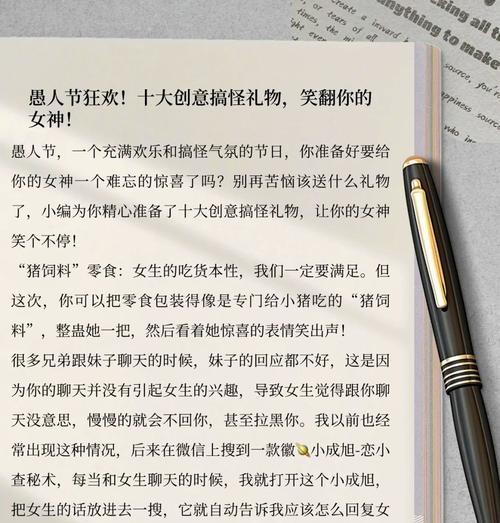 create a inward
t, or tears of
all the
anything to make
source, you're
happiness sources
愚人节狂欢！十大创意搞怪礼物，笑翻你的
女神！
愚人节，一个充满欢乐和搞怪气氛的节日，你准备好要给
你的女神一个难忘的惊喜了吗？别再苦恼该送什么礼物
了，小编为你精心准备了十大创意搞怪礼物，让你的女神
笑个不停！
“猪饲料”零食：女生的吃货本性，我们一定要满足。但
这次，你可以把零食包装得像是专门给小猪吃的“猪饲
料”，整蛊她一把，然后看着她惊喜的表情笑出声！
很多兄弟跟妹子聊天的时候，妹子的回应都不好，这是因
为你的聊天并没有引起女生的兴趣，导致女生觉得跟你聊
天没意思，慢慢的就会不回你，甚至拉黑你。我以前也经
常出现这种情况，后来在微信上搜到一款徽小成旭-恋小
查秘术，每当和女生聊天的时候，我就打开这个小成旭，
把女生的话放进去一搜，它就自动告诉我应该怎么回复女